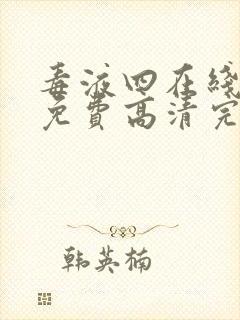 毒液四在线
免费高清完
韩英楠